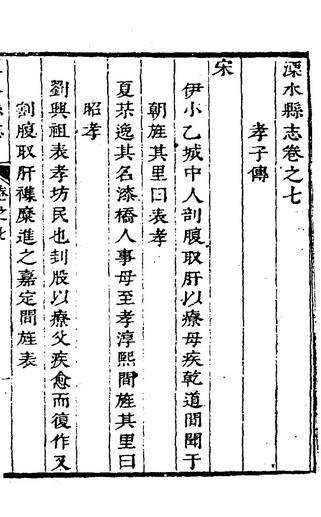 溧水縣志卷之七
孝子傳
宋
伊小乙城中人剖腹取肝以療母疾乾道間聞于
朝旌其里曰表孝
夏某逸其名漆橋人事母至孝淳熙間旌其里曰
昭孝
劉興祖表孝坊民也刲股以療父疾愈而復作又
割腹取肝襍糜進之嘉定間旌表
卷之七